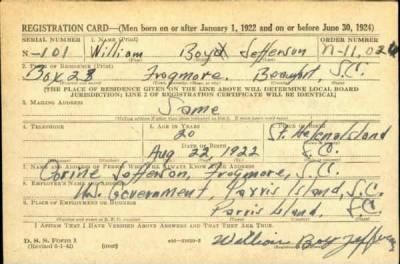 REGISTRATION CARD—(Men born on or after January 1, 1922 and on or before June 30, 1924)
SERIAL NUMBER 1. NAME (Print) ORDER NUMBER
N-101 William Boyd Jefferson N-11,024
2. PLACE OF RESIDENCE (Print)
Box 28 Frogmore. Beaufort, S.C.
[THE PLACE OF RESIDENCE GIVEN ON THE LINE ABOVE WILL DETERMINE LOCAL BOARD
JURISDICTION; LINE 2 OF REGISTRATION CERTIFICATE WILL BE IDENTICAL]
3. MAILING ADDRESS
Same
4. TELEPHONE 5. AGE IN YEARS 6. PLACE OF BIRTH
20 St. Helena Island
DATE OF BIRTH
Aug 22, 1922 S.C.
7. NAME AND ADDRESS OF PERSON WHO WILL ALWAYS KNOW YOUR ADDRESS
Corine Jefferson, Frogmore, S.C.
8. EMPLOYER'S NAME AND ADDRESS
U.S. Government, Parris Island, S.C.
9. PLACE OF EMPLOYMENT OR BUSINESS
Parris Island, S.C.
I AFFIRM THAT I HAVE VERIFIED ABOVE ANSWERS AND THAT THEY ARE TRUE.
D. S. S. Form 1
(Revised 6-1-42) (over) William Boy Jefferson